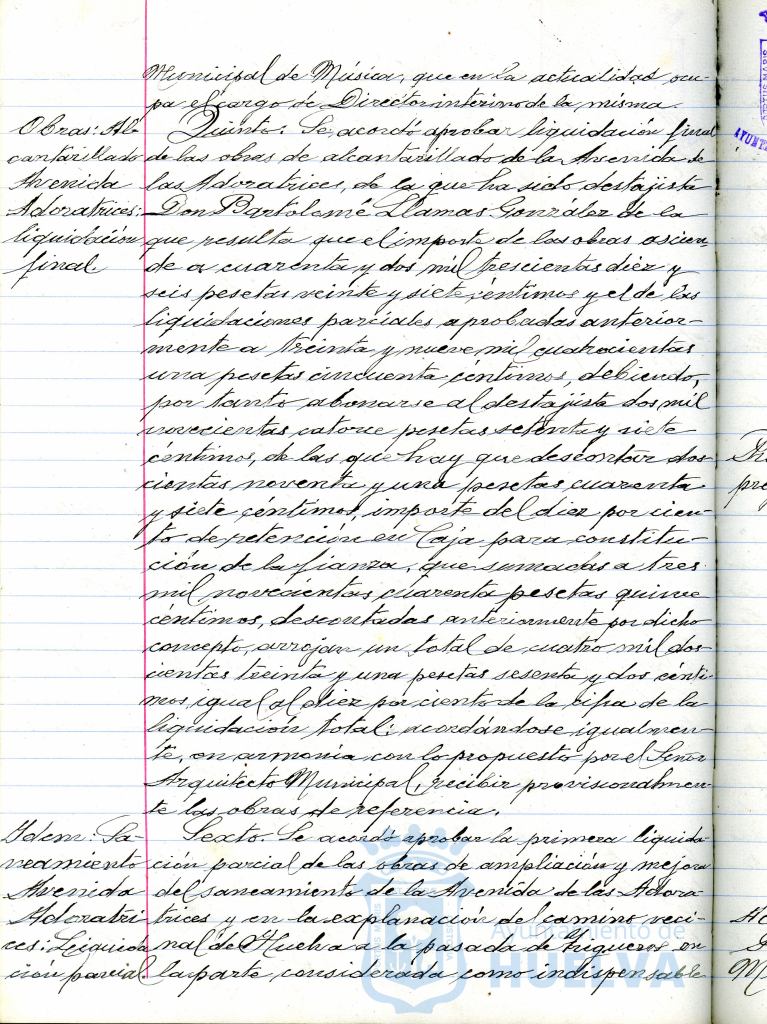 Municipal de Música, que en la actualidad ocu-
pa el cargo de Director interino de la misma.
Obras: Al-
cantarillado
Avenida
Adoratrices:
liquidación
final.
Quinto. Se acordó aprobar liquidación final
de las obras de alcantarillado de la Avenida de
las Adoratrices, de la que ha sido destajista
Don Bartolomé Llamas González de la
que resulta que el importe de las obras ascien-
de a cuarenta y dos mil trescientas diez y
seis pesetas veinte y siete céntimos y el de las
liquidaciones parciales aprobadas anterior-
mente a treinta y nueve mil cuatrocientas
una pesetas cincuenta céntimos, debiendo,
por tanto abonarse al destajista dos mil
novecientas catorce pesetas setenta y siete
céntimos, de las que hay que descontar dos-
cientas noventa y una pesetas cuarenta
y siete céntimos, importe del diez por cien-
to de retención en Caja para constitu-
ción de la fianza, que sumadas a tres
mil novecientas cuarenta pesetas quince
céntimos, descontadas anteriormente por dicho
concepto, arrojan un total de cuatro mil dos-
cientas treinta y una pesetas sesenta y dos cénti-
mos igual al diez por ciento de la cifra de la
liquidación total; acordándose igualmen-
te, en armonía con lo propuesto por el Señor
Arquitecto Municipal, recibir provisionalmen-
te las obras de referencia.
Idem: Sa-
neamiento
Avenida
Adoratri-
ces: Liquida-
ción parcial.
Sexto. Se acordó aprobar la primera liquida-
ción parcial de las obras de ampliación y mejora
del saneamiento de la Avenida de las Adora-
trices y en la explanación del camino veci-
nal de Huelva a la pasada de Trigueros en
la parte considerada como indispensable
Ayuntamiento de
HUELVA